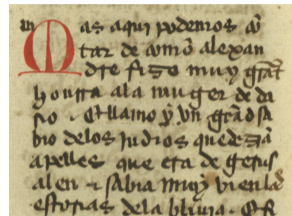 Mas aqui podemos cõ
tar de com̃o alexan
dre fizo muy grãt
honrra ala muger de da
rio . Et llamo y vn grãd sa
bio delos iudios que dezĩa
apelles que era de gerus
alen ⁊ sabia muy bien las
estorias dela bliuia